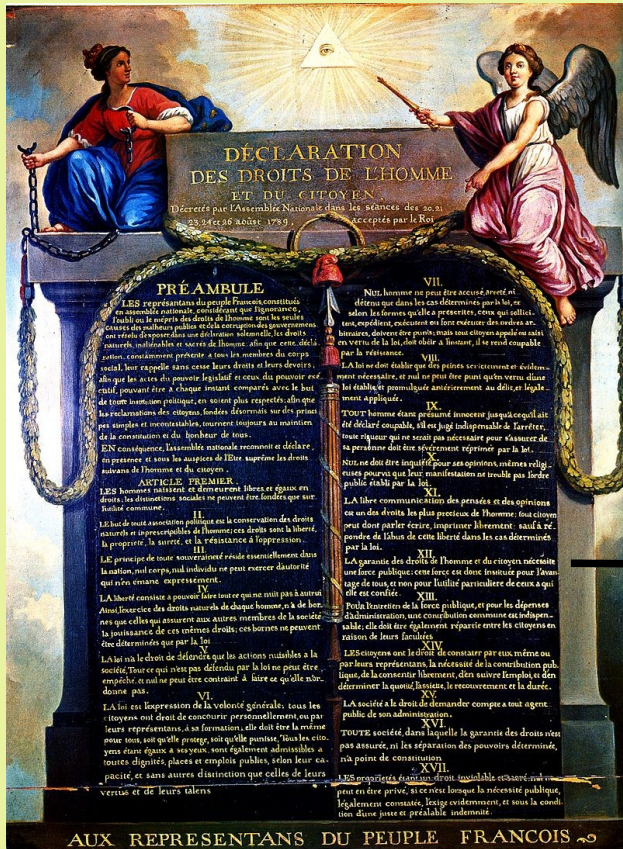 DÉCLARATION
DES DROITS DE L'HOMME
ET DU CITOYEN,
Décretés par l'Assemblée Nationale dans les séances des 20, 21
23, 24 et 26 août 1789, acceptés par le Roi
PRÉAMBULE
LES représentans du peuple François, constitués
en assemblée nationale, considérant que l'ignorance,
l'oubli ou le mépris des droits de l'homme sont les seules
causes des malheurs publics et de la corruption des gouvernemens
ont résolu d'exposer dans une déclaration solemnelle, les droits
naturels, inaliénables et sacrés de l'homme: afin que cette décla
ration, constamment présente a tous les membres du corps
social, leur rappelle sans cesse leurs droits et leurs devoirs,
afin que les actes du pouvoir législatif et ceux du pouvoir exé
cutif, pouvant être a chaque instant comparés avec le but
de toute institution politique, en soient plus respectés; afin que
les réclamations des citoyens, fondées désormais sur des princi
pes simples et incontestables, tournent toujours au maintien
de la constitution et du bonheur de tous.
EN conséquence, l'assemblée nationale reconnoit et déclare,
en presence et sous les auspices de l'Etre suprême les droits
suivans de l'homme et du citoyen.
ARTICLE PREMIER.
LES hommes naissent et demeurent libres et égaux en
droits, les distinctions sociales ne peuvent être fondées que sur
l'utilité commune.
II.
LE but de toute association politique est la conservation des droits
naturels et inprescriptibles de l'homme; ces droits sont la liberté,
la propriété, la sureté, et la résistance à l'oppression.
III.
LE principe de toute souveraineté réside essentiellement dans
la nation, nul corps, nul individu ne peut exercer d'autorité
qui n'en émane expressement.
IV.
LA liberté consiste a pouvoir faire tout ce qui ne nuit pas à autrui
Ainsi, l'exercice des droits naturels de chaque homme, n'a de bor
nes que celles qui assurent aux autres membres de la société
la jouissance de ces mêmes droits; ces bornes ne peuvent
être déterminées que par la loi
V.
LA loi n'a le droit de défendre que les actions nuisibles a la
société. Tout ce qui n'est pas défendu par la loi ne peut être
empêché, et nul ne peut être contraint à faire ce qu'elle n'or-
donne pas.
VI.
LA loi est l'expression de la volonté générale: tous les
citoyens ont droit de concourir personnellement, ou par
leurs représentans, à sa formation; elle doit être la même
pour tous, soit qu'elle protege, soit qu'elle punisse, Tous les cito
yens étant égaux a ses yeux, sont également admissibles a
toutes dignités, places et emplois publics, selon leur ca
pacité, et sans autres distinction que celles de leurs
vertus et de leurs talens
VII.
NUL homme ne peut être accusé, arreté, ni
détenu que dans les cas déterminés par la loi, et
selon les formes qu'elle a prescrites, ceux qui sollici-
tent, expédient, exécutent ou font exécuter des ordres ar-
bitraires, doivent être punis; mais tout citoyen appelé ou saisi
en vertu de la loi, doit obéir a l'instant, il se rend coupable
par la résistance.
VIII.
LA loi ne doit établir que des peines strictement et évidem-
ment nécessaire, et nul ne peut être puni qu'en vertu d'une
loi établie et promulguée antérierement au délit, et légale
ment appliquée.
IX.
TOUT homme étant présumé innocent jusqu'a ce qu'il ait
été déclaré coupable, s'il est jugé indispensable de l'arrêter,
toute rigueur qui ne serait pas nécessaire pour s'assurer de
sa personne doit être sévèrement réprimée par la loi.
X.
NUL ne doit être inquiété pour ses opinions, mêmes religi-
euses pourvu que leur manifestation ne trouble pas l'ordre
public établi par la loi.
XI.
LA libre communication des pensées et des opinions
est un des droits les plus precieux de l'homme; tout citoyen
peut dont parler écrire, imprimer librement: sauf à ré-
pondre de l'abus de cette liberté dans les cas déterminés
par la loi.
XII.
LA garantie des droits de l'homme et du citoyen nécessite
une force publique; cette force est donc instituée pour l'avan-
tage de tous, et non pour l'utilité particulière de ceux a qui
elle est confiée.
XIII.
POUR l'entretien de la force publique, et pour les dépenses
d'administration, une contribution commune est indispen-
sable; elle doit être également répartie entre les citoyens en
raison de leurs facultées
XIV.
LES citoyens ont le droit de constater par eux même ou
par leurs représentans, la nécessité de la contribution pub
lique, de la consentir librement, d'en suivre l'emploi, et d'en
déterminer la quotité, l'assiette, le recouvrement et la durée.
XV.
LA société a le droit de demander compte a tout agent
public de son administration.
XVI.
TOUTE société, dans laquelle la garantie des droits n'est
pas assurée, ni les séparation des pouvoirs déterminée,
n'a point de constitution
XVII.
LES propriétés étant un droit inviolable et sacré, nul ne
peut en être privé, si ce n'est lorsque la nécessité publique,
légalement constatée, l'exige evidemment, et sous la condi
tion d'une juste et préalable indemnité.
AUX REPRESENTANS DU PEUPLE FRANCOIS